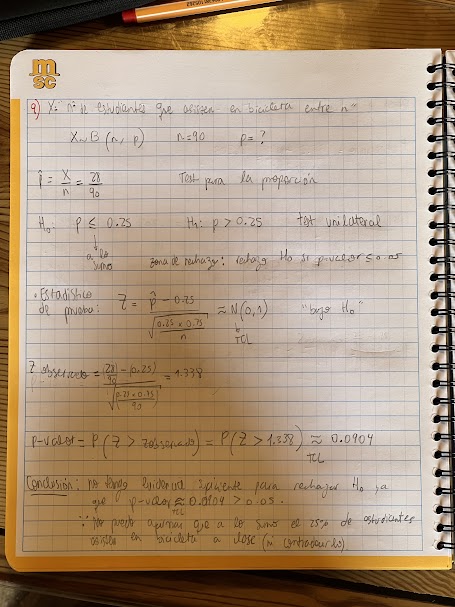 msc
9) X: "nº de estudiantes que asisten en bicicleta entre n"
X ~ B (n, p) n = 90 p = ?
p̂ = X/n = 28/90 Test para la proporción
H₀: p ≤ 0.25 H₁: p > 0.25 test unilateral
↓
a lo sumo zona de rechazo: rechazo H₀ si p-valor ≤ 0.05
• Estadístico de prueba: Z = (p̂ - 0.25) / √(0.25 × 0.75 / n) ≈ N(0,1) "bajo H₀"
TCL
Z observado = ((28/90) - (0.25)) / √((0.25 × 0.75) / 90) = 1.338
p-valor = P(Z > Zobservado) = P(Z > 1.338) ≈ 0.0904
TCL
Conclusión: no tengo evidencia suficiente para rechazar H₀ ya
que p-valor ≈ 0.0904 > 0.05.
TCL
∵ No puedo afirmar que a lo sumo el 25% de estudiantes
asisten en bicicleta a clase (ni contradecirlo)